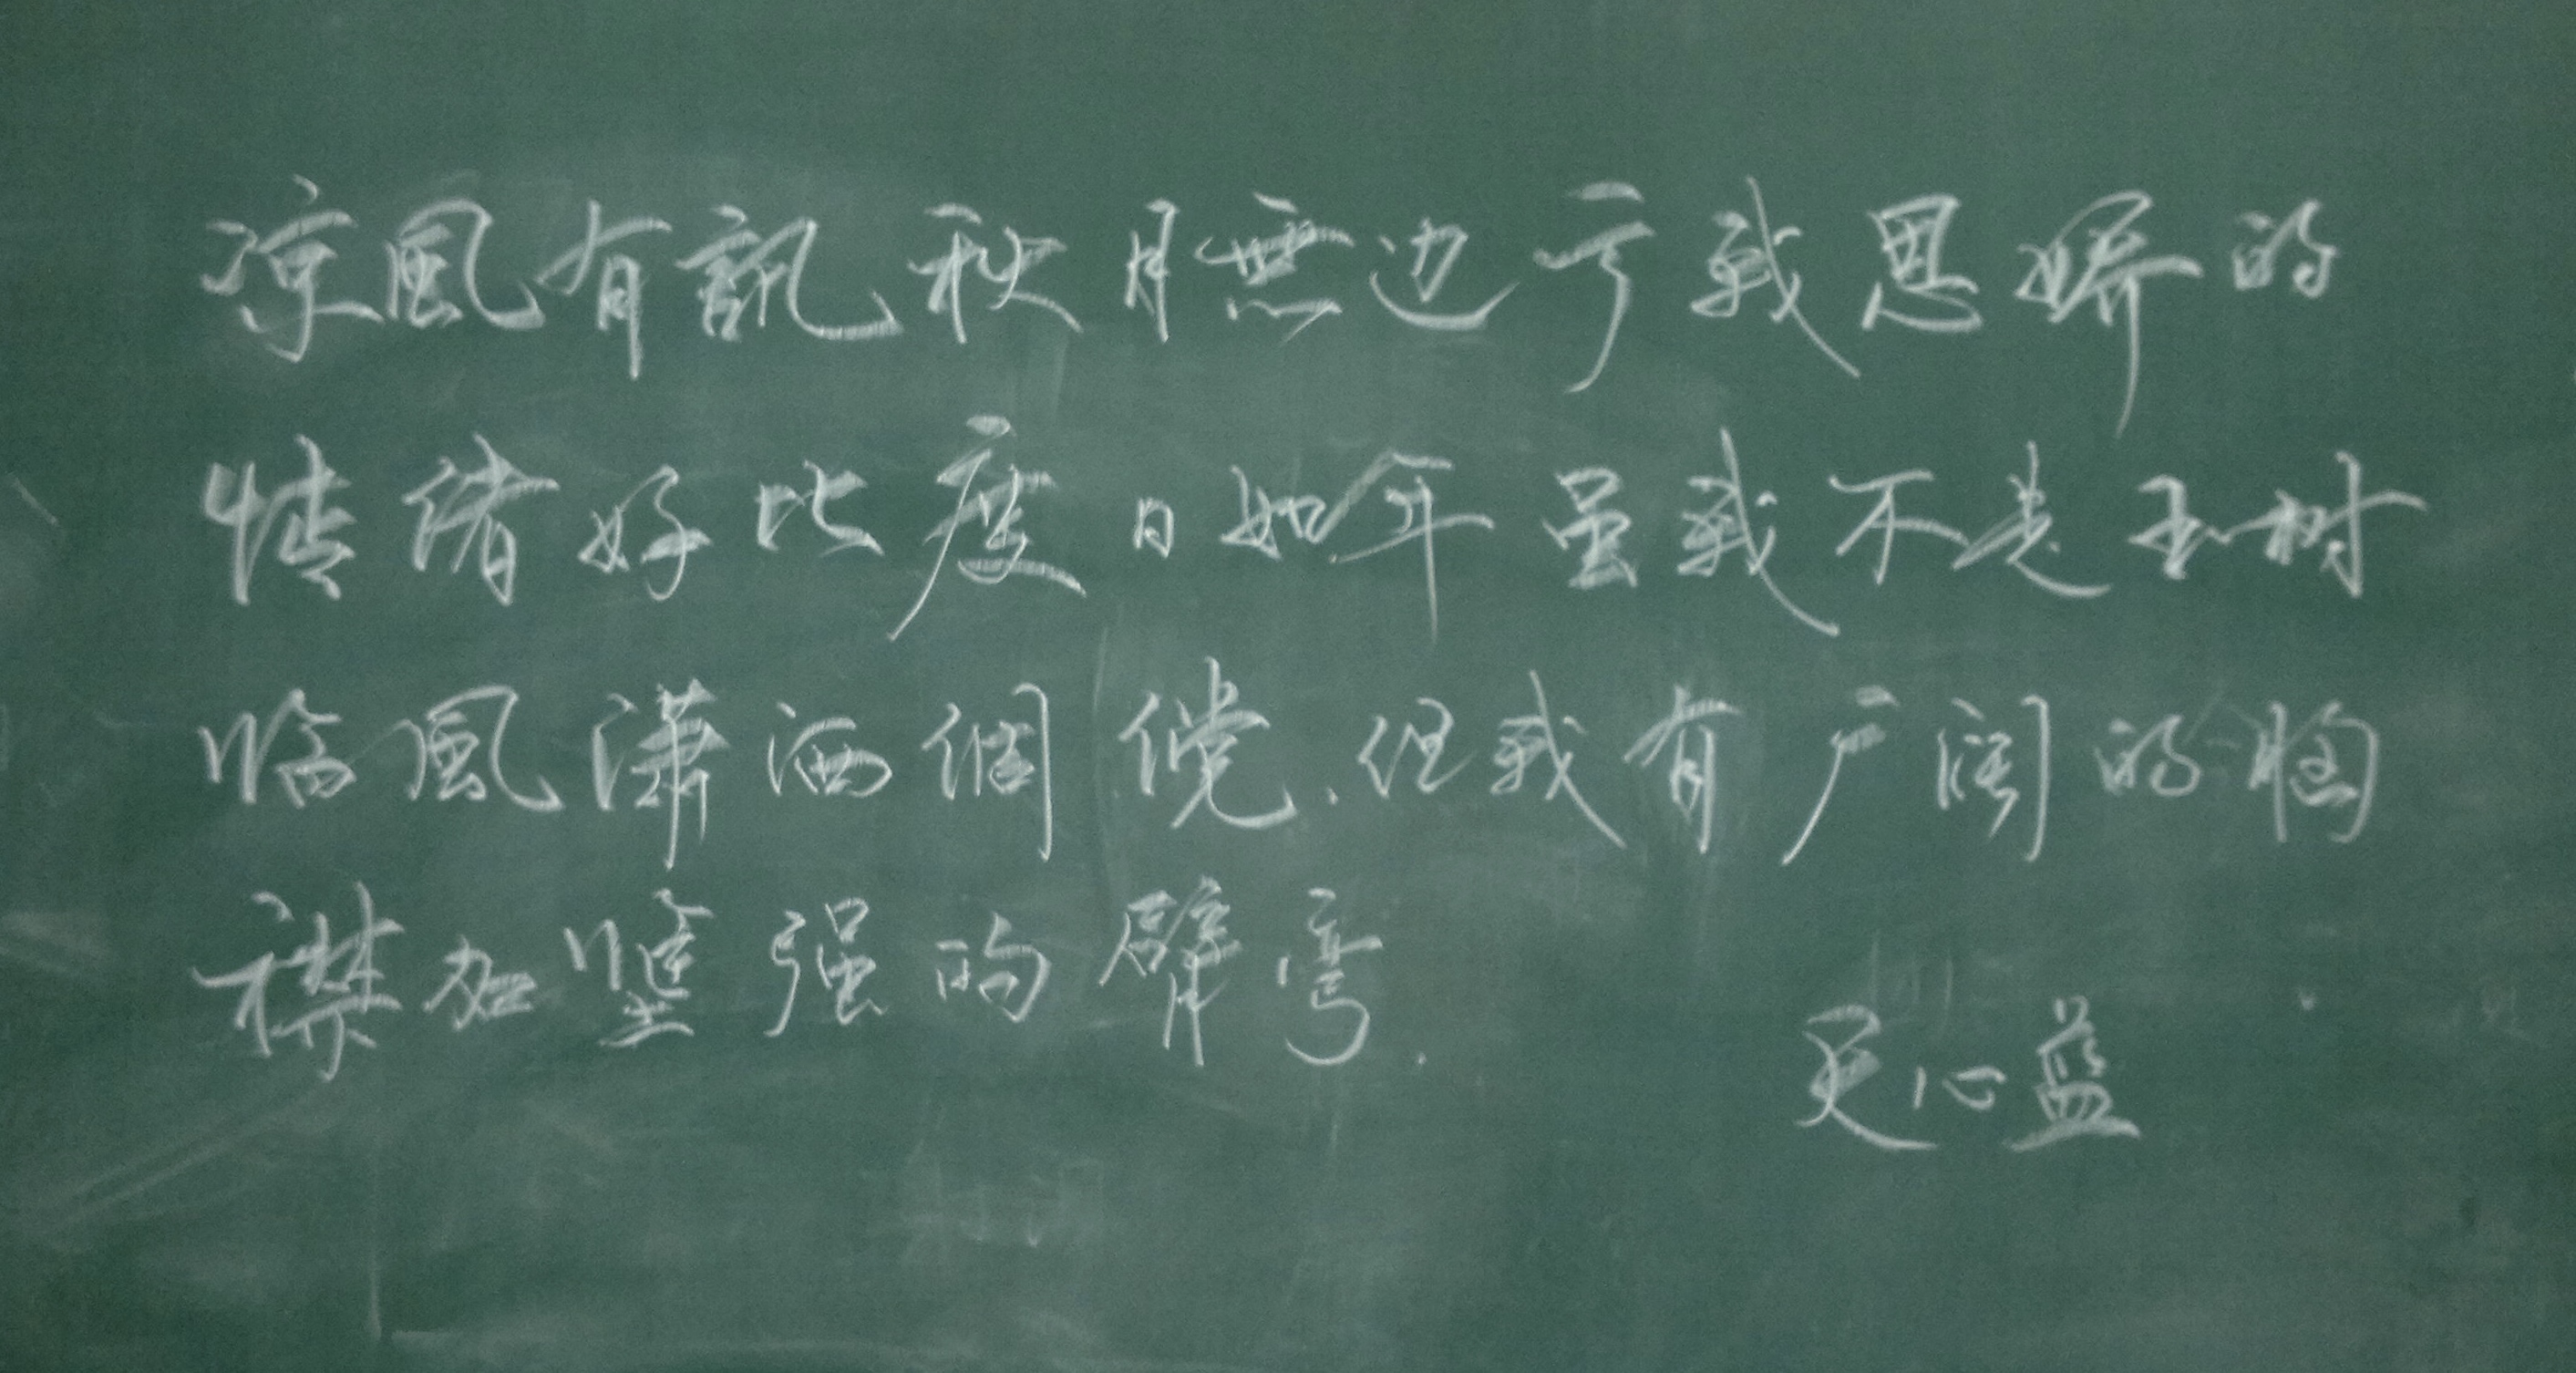 凉風有訊秋月無边亏我思娇的
情绪好比度日如年虽我不是玉树
临風潇洒倜傥.但我有广阔的胸
襟加坚强的臂弯.
心蓝